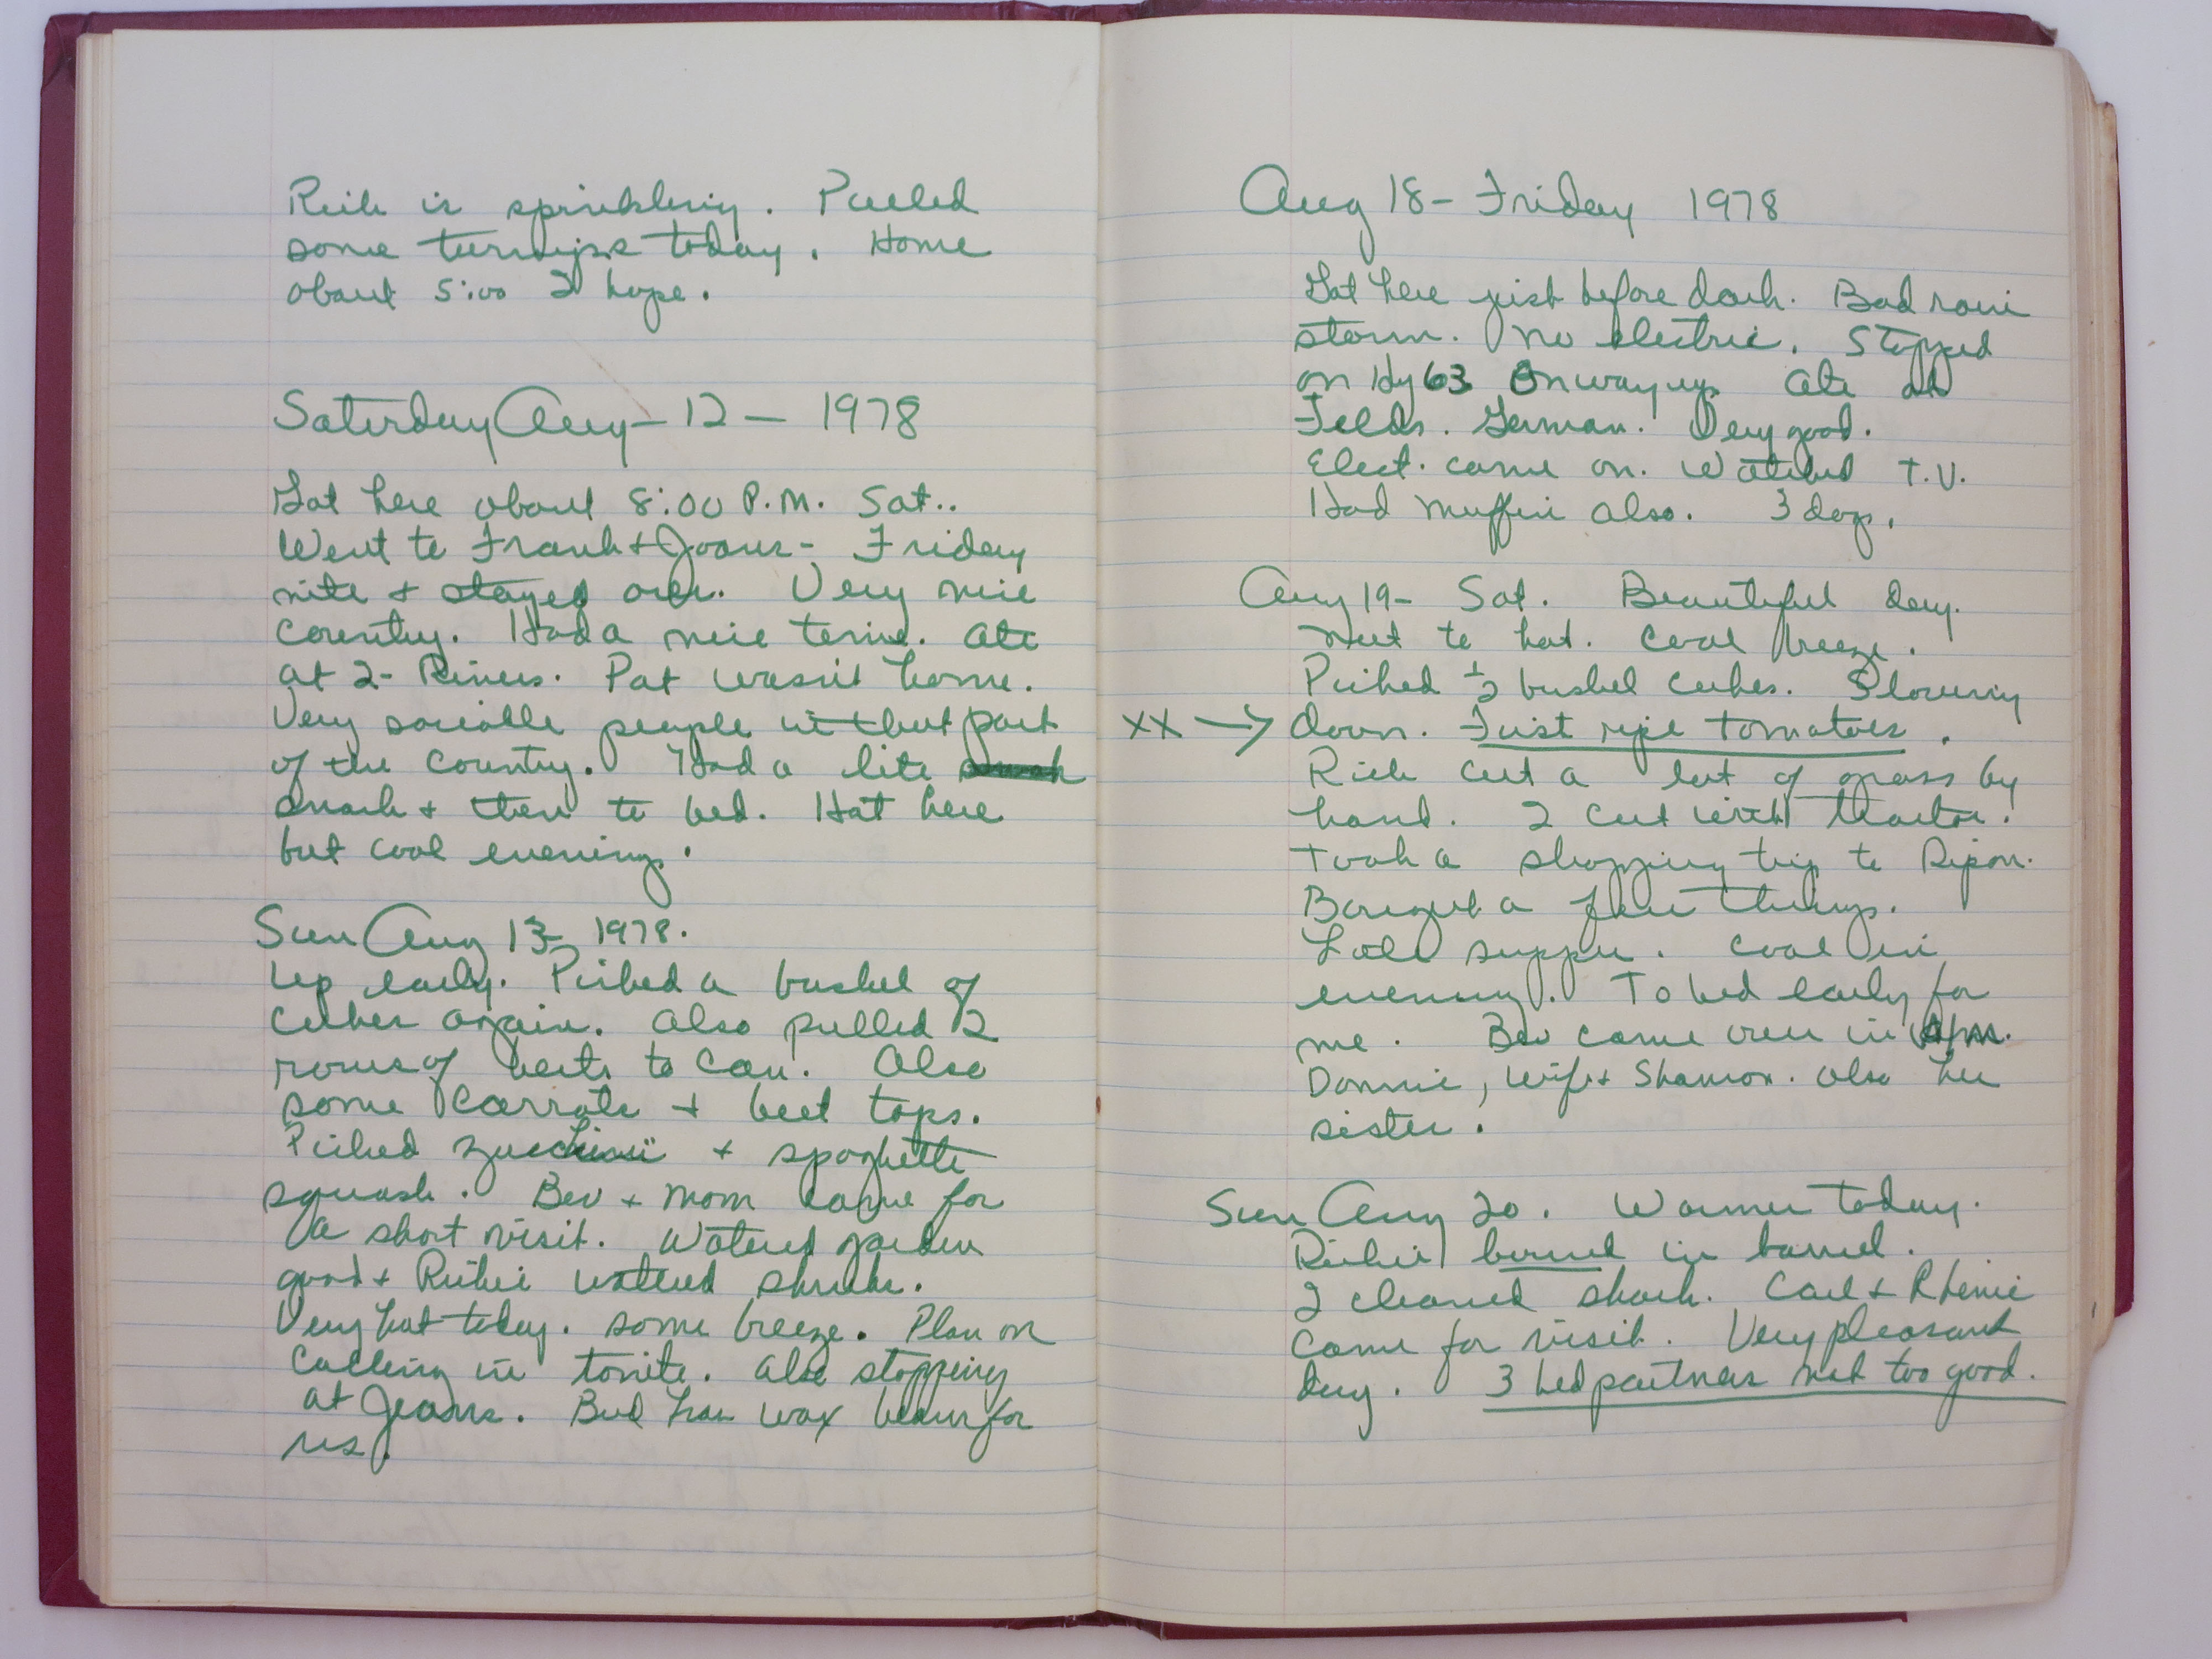 Rich is sprinkling. Pulled
some turnips today. Home
about 5:00 I hope.
Saturday Aug - 12 - 1978
Got here about 8:00 P.M. Sat..
Went to Frank & Joans - Friday
nite & stayed over. Very nice
country. Had a nice time. Ate
at 2- Rivers. Pat wasn't home.
Very sociable people in that part
of the country. Had a lite
snack & then to bed. Hot here
but cool evening.
Sun Aug 13 1978.
Up early. Picked a bushel of
cukes again. Also pulled 2
rows of beets to can. Also
some carrots & beet tops.
Picked zucchini & spaghetti
squash. Bev & Mom came for
a short visit. Watered garden
good & Richie watered shrubs.
Very hot today. some breeze. Plan on
calling in tonite. Also stopping
at Jeans. Bud has wax beans for
us.
Aug 18 - Friday 1978
Got here just before dark. Bad rain
storm. No electric. Stopped
on Hy 63 on way up. Ate at
Felds. German. Very good.
Elect. came on. Watched T.V.
Had Muffin also. 3 dogs.
Aug 19 - Sat. Beautiful day.
Not to hot. Cool breeze.
Picked ½ bushel cukes. Slowing
XX → down. First ripe tomatoes.
Rich cut a lot of grass by
hand. I cut with tractor.
Took a shopping trip to Ripon.
Bought a few things.
Late supper. Cool in
evening. To bed early for
me. Bev came over in P.M.
Donnie, wife & Shannon. Also her
sister.
Sun Aug 20. Warmer today.
Richie burned in barrel.
I cleaned shack. Carl & Rhenie
came for visit. Very pleasant
day. 3 bed partners not too good.